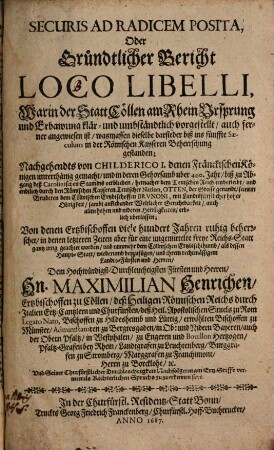 SECURIS AD RADICEM POSITA,
Oder
Gründtlicher Bericht
LOCO LIBELLI,
Warin der Statt Cöllen am Rhein Vrsprung
und Erbawung klar- und umbständtlich vorgestellt / auch ferner
angewiesen ist / was massen dieselbe dasieder biß ins fünffte Sæ-
culum in der Römischen Kayseren Beherrschung
gestanden;
Nachgehendts von CHILDERICO I. denen Fränckischen Königen
unterthänig gemacht / und in deren Gehorsamb über 400. Jahr /
Carolum
OTTEN,
BRUNONI,
Von denen Ertzbischoffen viele hundert Jahren ruhig beherr-
schet / in denen letzteren Zeiten aber für eine ungemittelte freye Reichs-Statt
Dem Hochwürdigst-Durchleuchtigsten Fürsten und Herren /
Hn. MAXIMILIAN Henrichen /
Ertzbischoffen zu Cöllen / deß Heiligen Römischen Reichs durch
Italien Ertz-Cantzlern und Churfürsten / deß Heil. Apostolischen Stuels zu Rom
Legato Nato, Bischoffen zu Hildesheimb und Lüttig / erwöhlten Bischoffen zu
Münster / Administratorn zu Bergtesgaden / in Ob: und Nidern Bayern / auch
der Obern Pfaltz / in Westphalen / zu Engeren und Bouillon Hertzogen /
Pfaltz-Grafen bey Rhein / Landtgrafen zu Leuchtenberg / Burggra-
fen zu Stromberg / Marggrafen zu Franchimont /
Herrn zu Borckelohe / ꝛc.
In der Churfürstl. Residentz-Statt Bonn /
Truckts Georg Friedrich Franckenberg / Churfürstl. Hoff-Buchtrucker /
ANNO 1687.